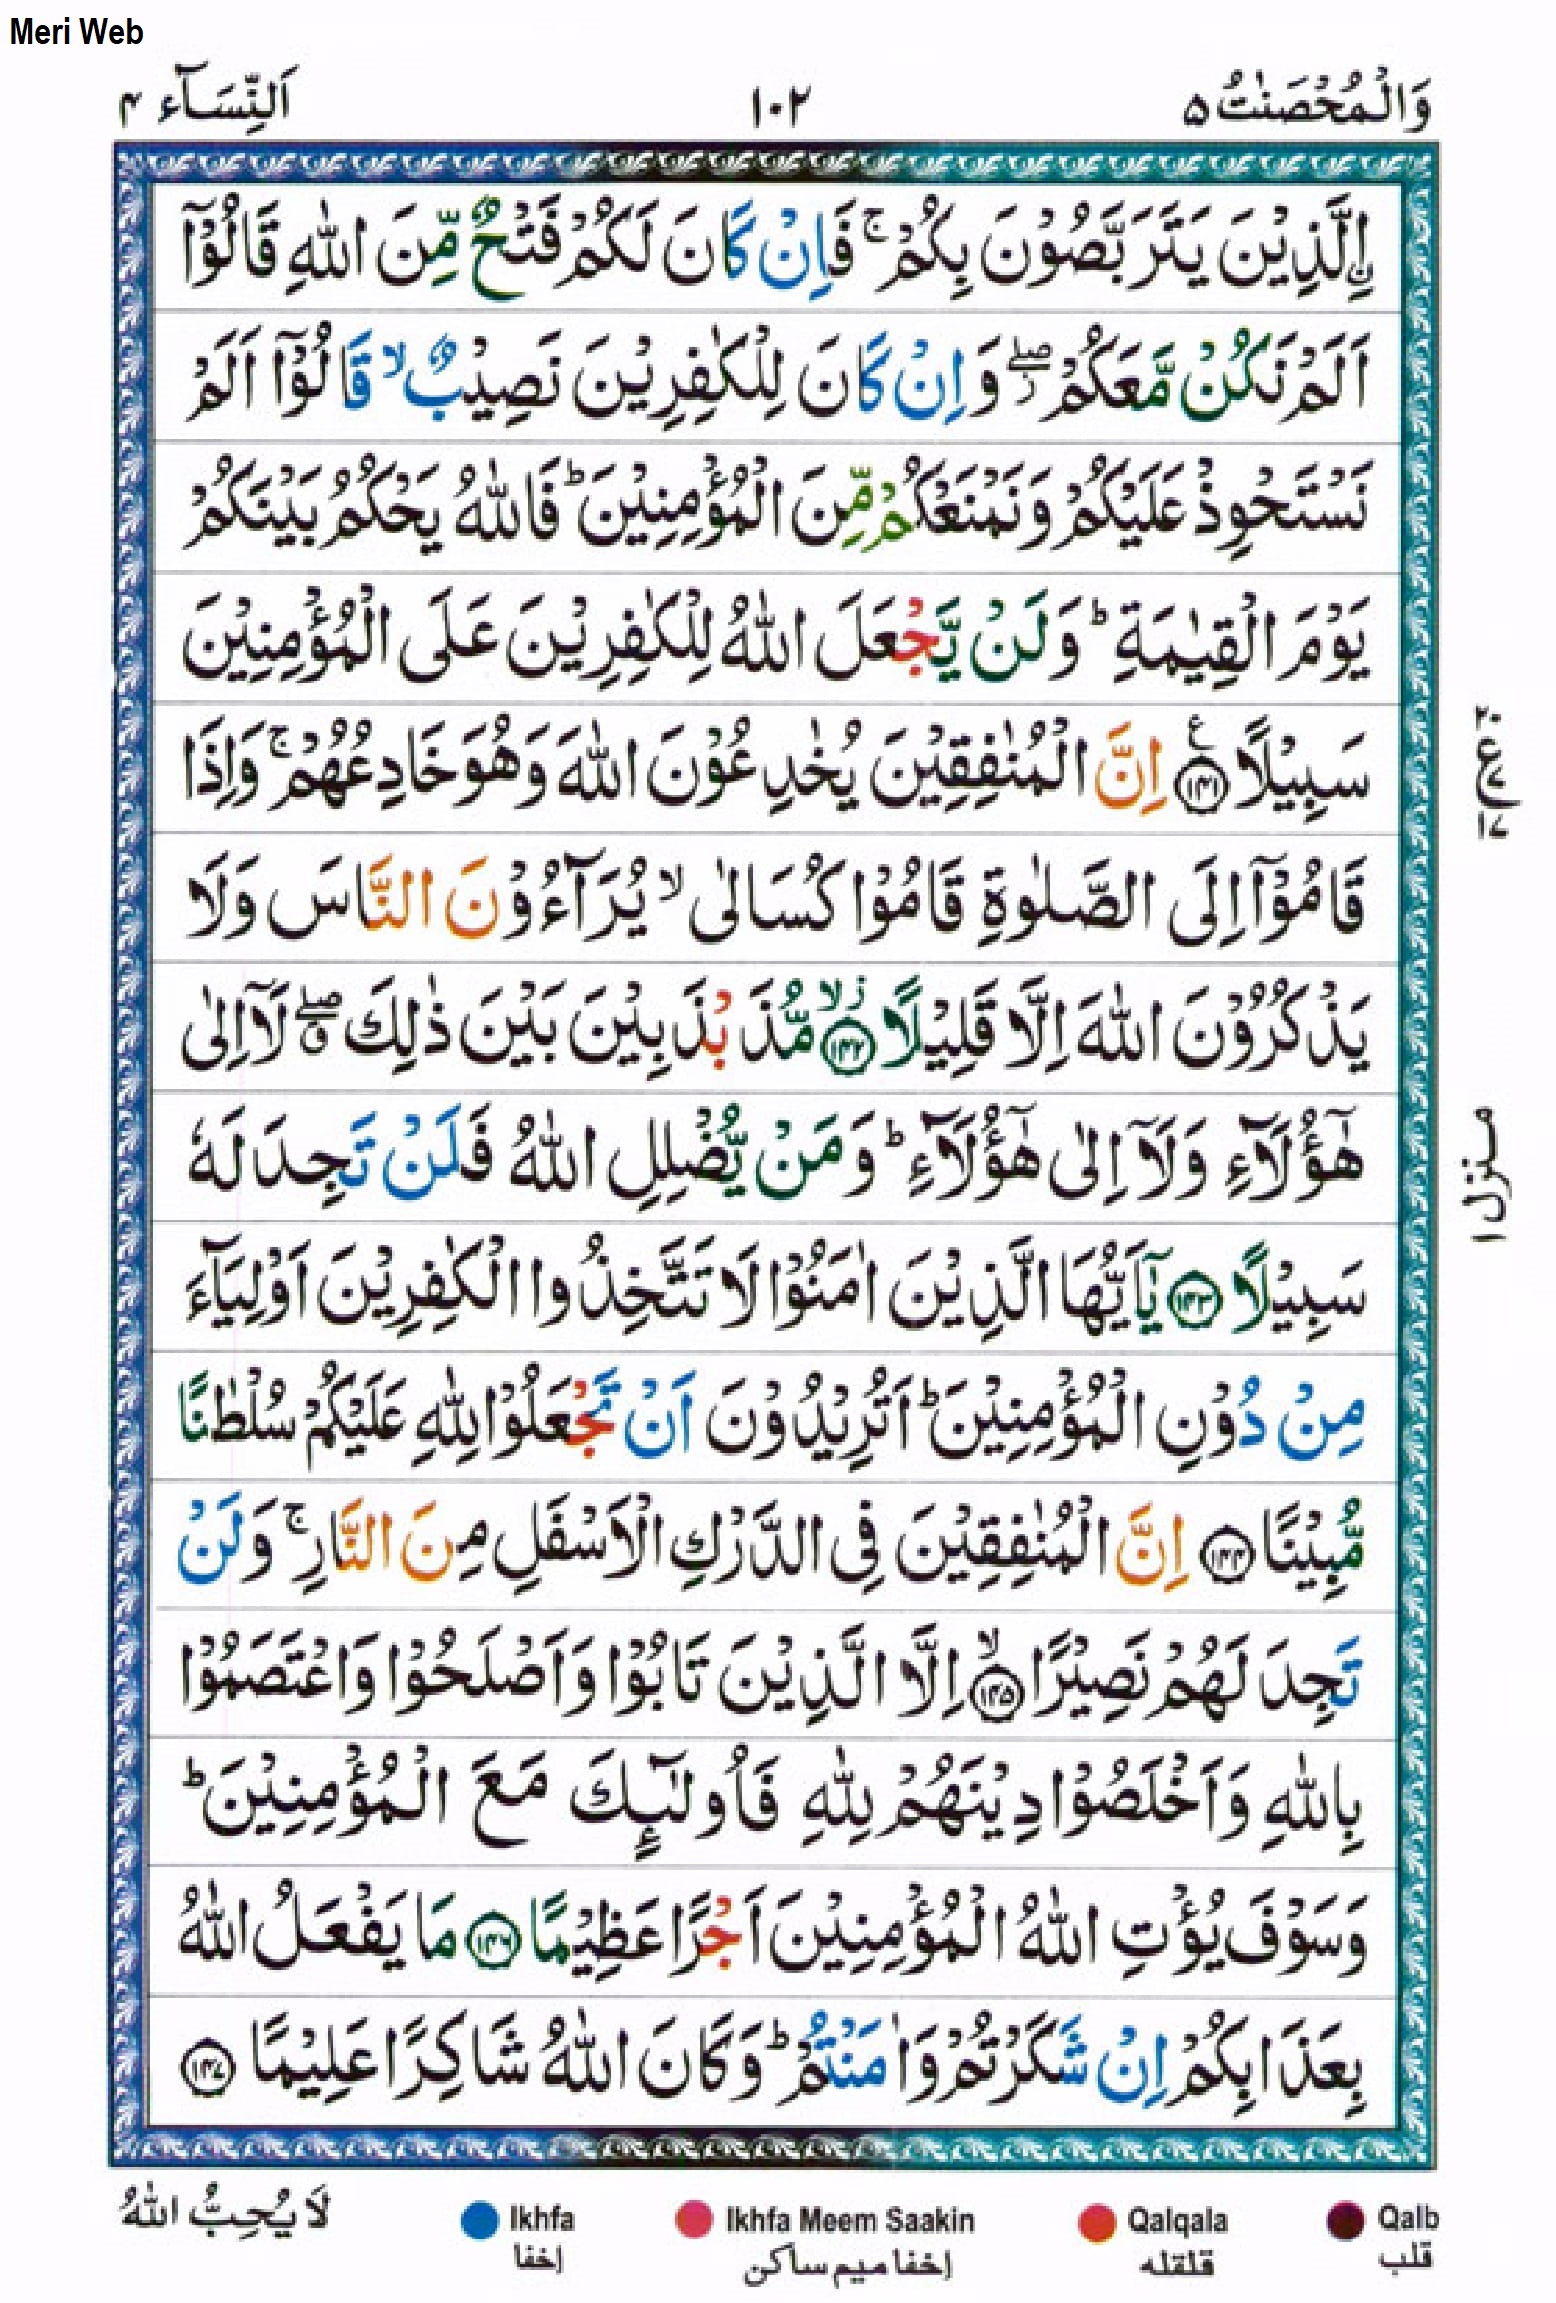 Meri Web
وَالْمُحْصَنٰتُ ۵
۱۰۲
اَلنِّسَآء ۴
اۨلَّذِيْنَ يَتَرَبَّصُوْنَ بِكُمْ ۚ فَاِنْ كَانَ لَكُمْ فَتْحٌ مِّنَ اللّٰهِ قَالُوْۤا
اَلَمْ نَكُنْ مَّعَكُمْ ۖ وَاِنْ كَانَ لِلْكٰفِرِيْنَ نَصِيْبٌ ۙ قَالُوْۤا اَلَمْ
نَسْتَحْوِذْ عَلَيْكُمْ وَنَمْنَعْكُمْ مِّنَ الْمُؤْمِنِيْنَ ؕ فَاللّٰهُ يَحْكُمُ بَيْنَكُمْ
يَوْمَ الْقِيٰمَةِ ؕ وَلَنْ يَّجْعَلَ اللّٰهُ لِلْكٰفِرِيْنَ عَلَى الْمُؤْمِنِيْنَ
سَبِيْلًا ﴿۱۴۱﴾ ع اِنَّ الْمُنٰفِقِيْنَ يُخٰدِعُوْنَ اللّٰهَ وَهُوَ خَادِعُهُمْ ۚ وَاِذَا
قَامُوْۤا اِلَى الصَّلٰوةِ قَامُوْا كُسَالٰى ۙ يُرَآءُوْنَ النَّاسَ وَلَا
يَذْكُرُوْنَ اللّٰهَ اِلَّا قَلِيْلًا ﴿۱۴۲﴾ ز لا مُّذَبْذَبِيْنَ بَيْنَ ذٰلِكَ ۖ لَاۤ اِلٰى
هٰۤؤُلَآءِ وَلَاۤ اِلٰى هٰۤؤُلَآءِ ؕ وَمَنْ يُّضْلِلِ اللّٰهُ فَلَنْ تَجِدَ لَهٗ
سَبِيْلًا ﴿۱۴۳﴾ يٰۤاَيُّهَا الَّذِيْنَ اٰمَنُوْا لَا تَتَّخِذُوا الْكٰفِرِيْنَ اَوْلِيَآءَ
مِنْ دُوْنِ الْمُؤْمِنِيْنَ ؕ اَتُرِيْدُوْنَ اَنْ تَجْعَلُوْا لِلّٰهِ عَلَيْكُمْ سُلْطٰنًا
مُّبِيْنًا ﴿۱۴۴﴾ اِنَّ الْمُنٰفِقِيْنَ فِى الدَّرْكِ الْاَسْفَلِ مِنَ النَّارِ ۚ وَلَنْ
تَجِدَ لَهُمْ نَصِيْرًا ۙ ﴿۱۴۵﴾ اِلَّا الَّذِيْنَ تَابُوْا وَاَصْلَحُوْا وَاعْتَصَمُوْا
بِاللّٰهِ وَاَخْلَصُوْا دِيْنَهُمْ لِلّٰهِ فَاُولٰٓئِكَ مَعَ الْمُؤْمِنِيْنَ ؕ
وَسَوْفَ يُؤْتِ اللّٰهُ الْمُؤْمِنِيْنَ اَجْرًا عَظِيْمًا ﴿۱۴۶﴾ مَا يَفْعَلُ اللّٰهُ
بِعَذَابِكُمْ اِنْ شَكَرْتُمْ وَاٰمَنْتُمْ ؕ وَكَانَ اللّٰهُ شَاكِرًا عَلِيْمًا ﴿۱۴۷﴾
۲۰
ع
۱۷
منزل ۱
لَا يُحِبُّ اللّٰهُ
Ikhfa
اخفا
Ikhfa Meem Saakin
اخفا میم ساکن
Qalqala
قلقله
Qalb
قلب